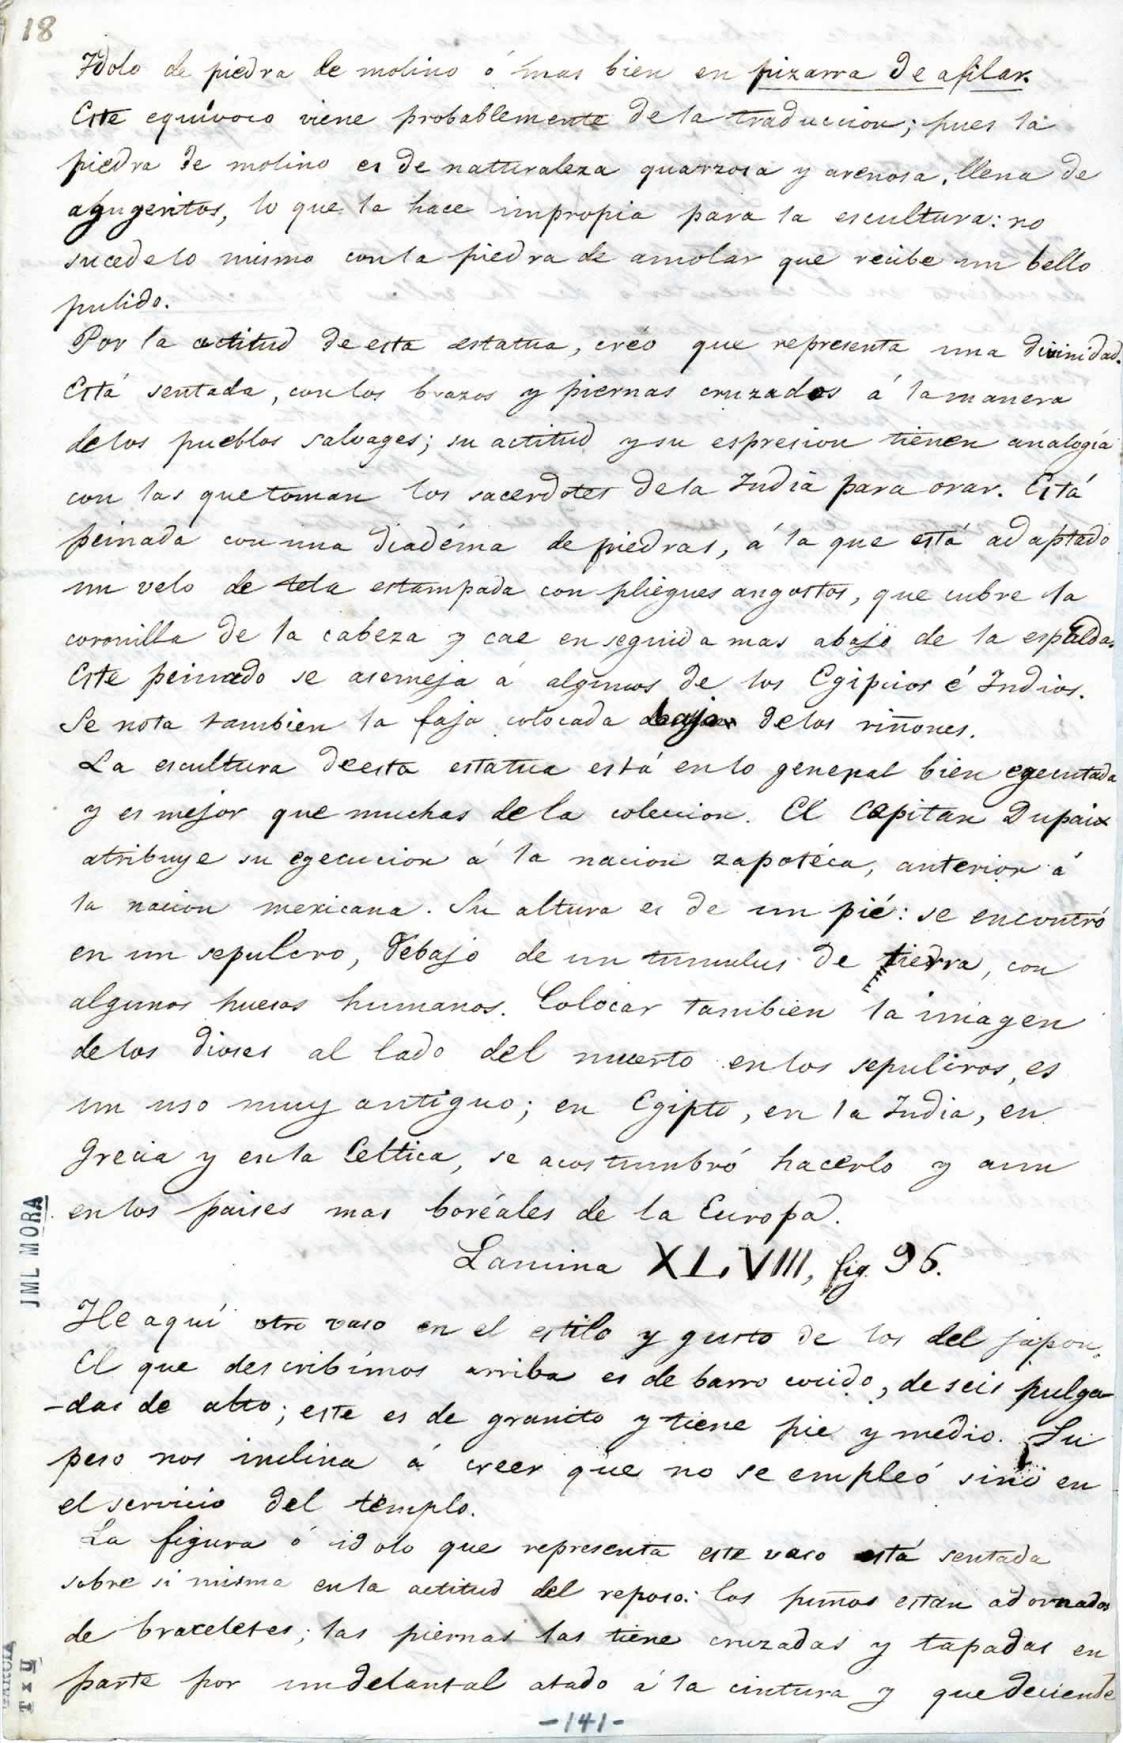 18
Idolo de piedra de molino ó mas bien en pizarra de afilar.
Este equívoco viene probablemente de la traduccion; pues la
piedra de molino es de natturaleza quarzosa y arenosa, llena de
agugeritos, lo que la hace impropia para la escultura: no
sucede lo mismo con la piedra de amolar que recibe un bello
pulido.
Por la actitud de esta estatua, créo que representa una divinidad.
Está sentada, con los brazos y piernas cruzados á la manera
de los pueblos salvages; su actitud y su espresion tienen analogía
con las que toman los sacerdotes de la India para orar. Está
peinada con una diadéma de piedras, á la que está adaptado
un velo de tela estampada con pliegues angostos, que cubre la
coronilla de la cabeza y cae en seguida mas abajo de la espalda.
Este peinado se asemeja á algunos de los Egipcios é Indios.
Se nota tambien la faja colocada bajo de los riñones.
La escultura de esta estatua está en lo general bien egecutada
y es mejor que muchas de la coleccion. El Capitan Dupaix
atribuye su egecucion á la nacion zapotéca, anterior á
la nacion mexicana. Su altura es de un pié: se encontró
en un sepulcro, debajo de un tumulus de tierra, con
algunos huesos humanos. Colocar tambien la imagen
de los dioses al lado del muerto en los sepulcros, es
un uso muy antiguo; en Egipto, en la India, en
Grecia y en la Celtica, se acostumbró hacerlo y aun
en los paises mas boréales de la Europa.
Lamina XLVIII, fig. 96.
He aquí otro vaso en el estilo y gusto de los del japon.
El que describimos arriba es de barro cocido, de seis pulga-
-das de alto; este es de granito y tiene pie y medio. Su
peso nos inclina á creer que no se empleó sino en
el servicio del templo.
La figura ó idolo que representa este vaso está sentada
sobre si misma en la actitud del reposo: los puños estan adornados
de braceletes; las piernas las tiene cruzadas y tapadas en
parte por un delantal atado á la cintura y que deciende
-141-
JML MORA